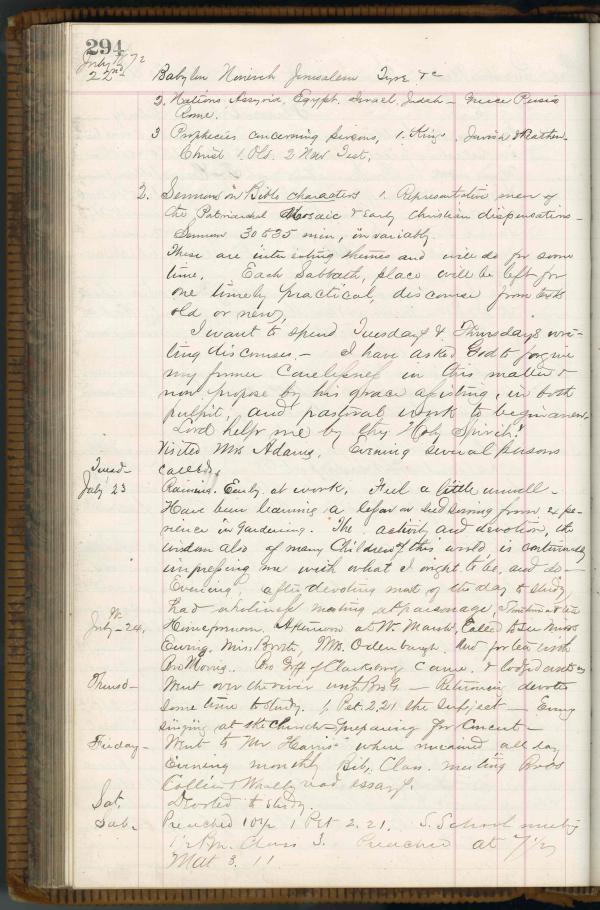 294
July 72
22nd Babylon Nineveh Jerusalem Tyre &c
2. Nations Assyria, Egypt. Israel, Judah - Greece Persia
Rome.
3 Prophecies concerning persons, 1. Kings. Jewish & Heathen.
Christ 1. Old. 2 New Test.
2. Sermons on Bible characters 1. Representative men of
the Patriarchal Mosaic & Early Christian dispensations -
Sermon 30 & 35 min, invariably
These are interesting themes and will do for some
time. Each Sabbath, place will be left for
one timely practical, discourse from texts
old or new,
I want to spend Tuesdays & Thursdays wri-
ting discourses, - I have asked God to forgive
my former carelessness in this matter &
now propose by his grace assisting, in both
pulpit, and pastoral work to begin anew.
Lord help me by thy Holy Spirit!
Visited Mrs Adams. Evening several persons
Tuesd- called.
July 23 Raining. Early at work. Feel a little unwell -
Have been learning a lesson on seed sowing from expe-
rience in Gardening. The activity and devotion, the
wisdom also of many Children of this world, is continually
impressing me with what I ought to be, and do -
Evening, after devoting most of the day to study,
had a holiness meeting at parsonage,
W.
July - 24. Afternoon at W. Marsh, Called to see Miss
Ewing. Miss Booth, Mrs. Odenbaugh. And for tea with
Bro Morris. Bro of Clarksburg came. & lodged with us
Thursd - Went over the river with Bro G - Returning devoted
some time to study. 1, Pet. 2,21 the subject - Evening
singing at the Church - preparing for Concert -
Friday - Went to Mr Harris' where remained all day
Evening monthly Bib. Class. meeting Bros
Collier & read essays.
Sat. Devoted to study.
Sab. Preached 10½ 1 Pet 2. 21. S. School meeting
1½ Pm. Class 3. Preached at 7½
Mat 3. 11